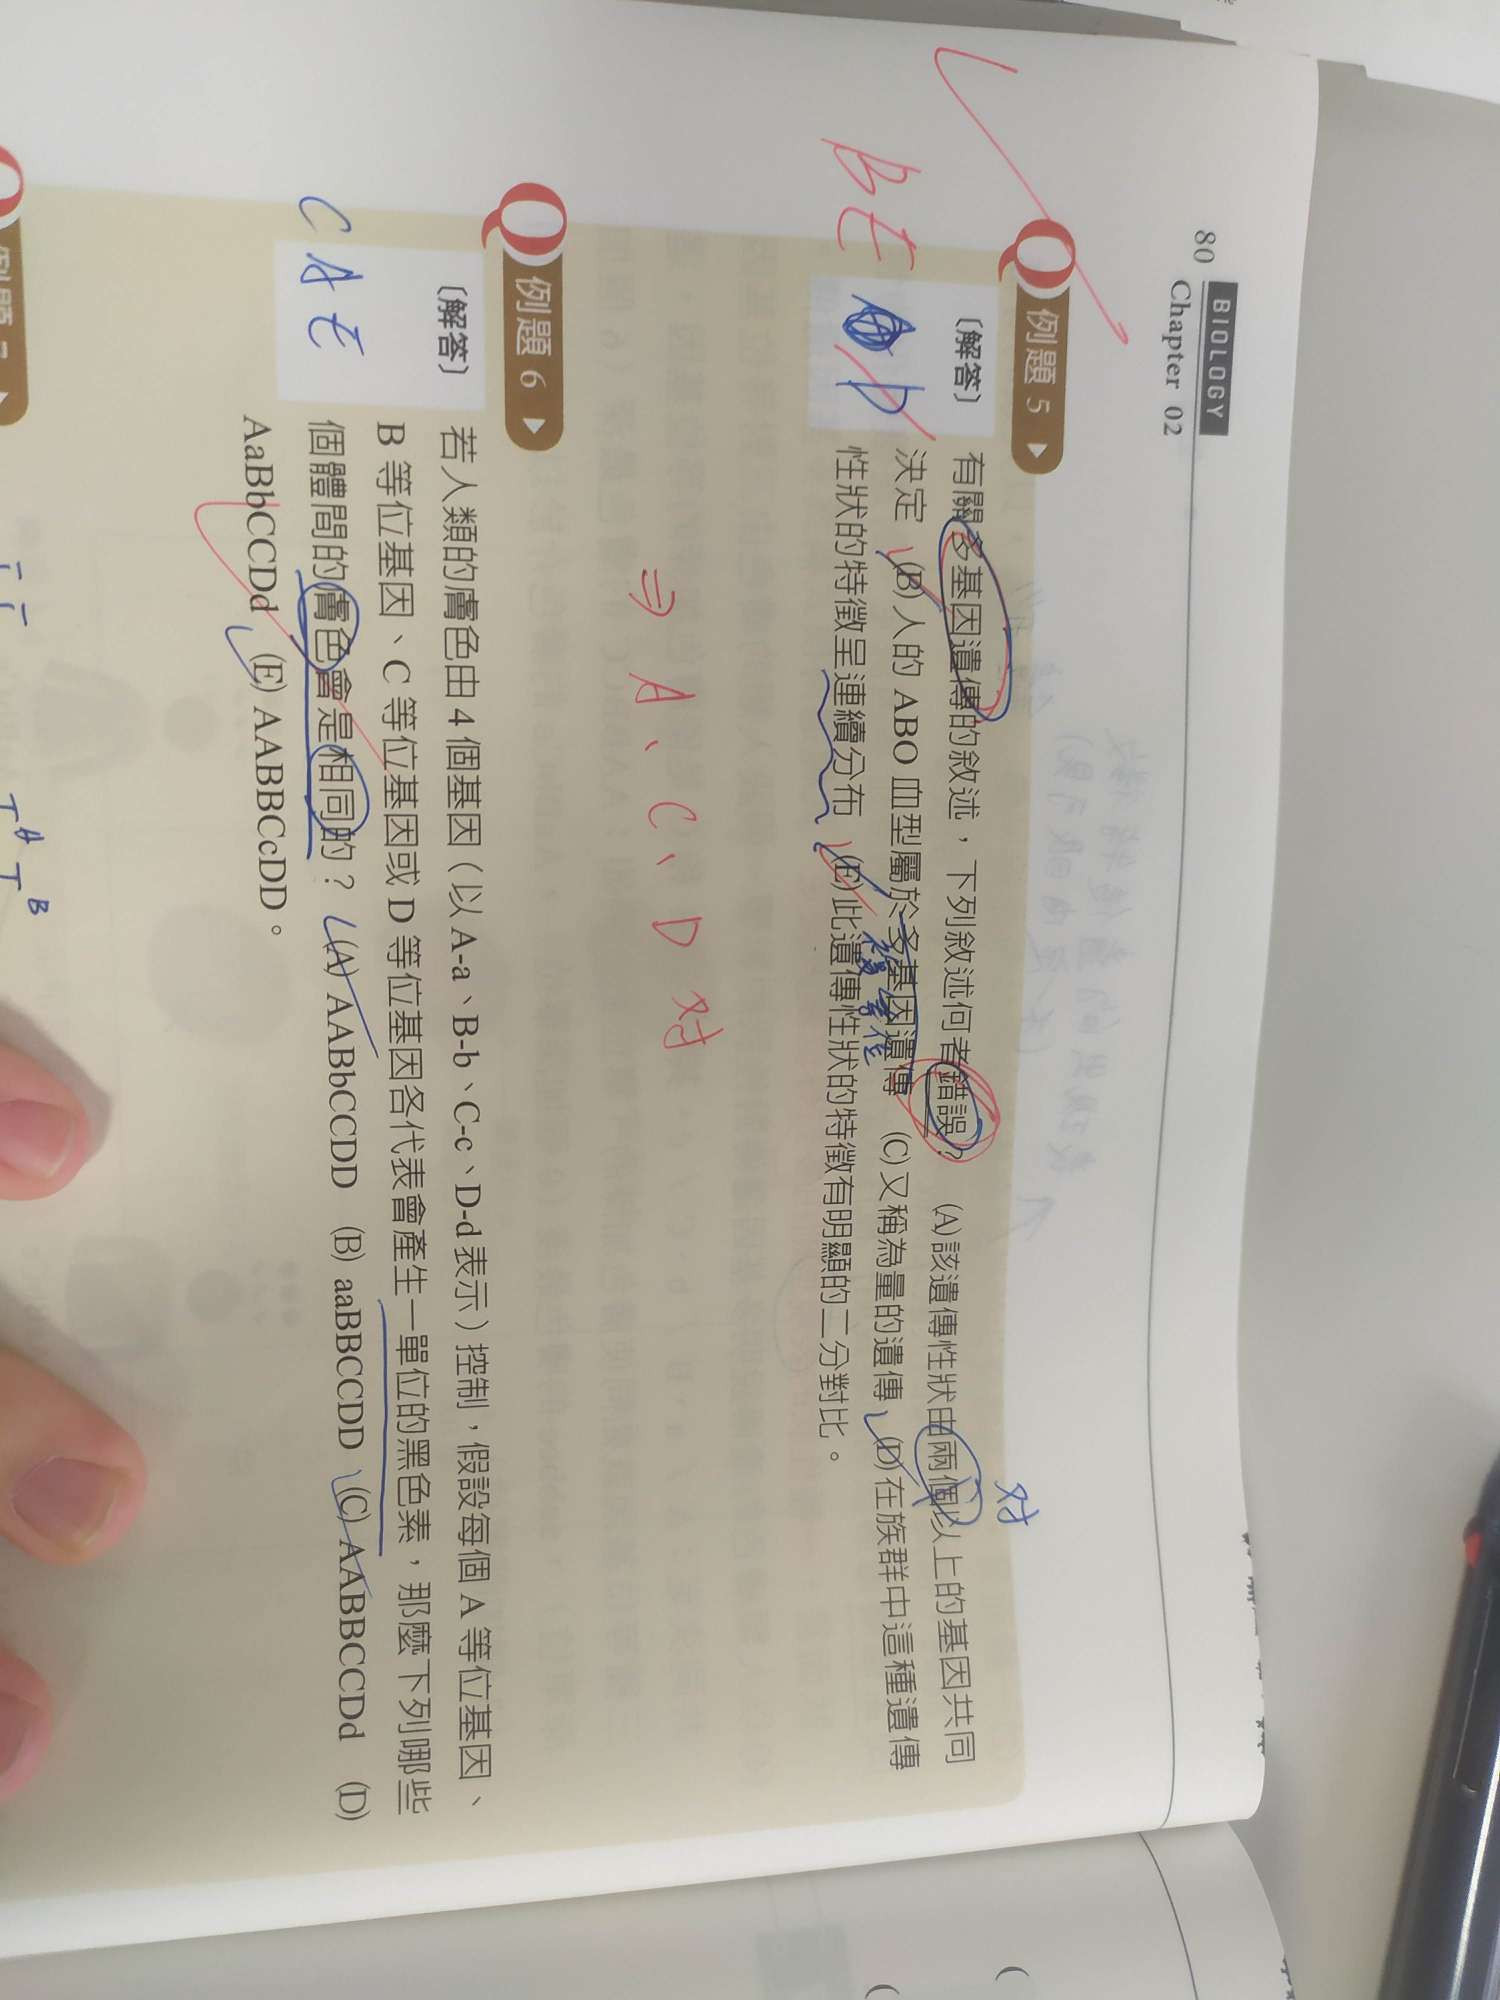 80
BIOLOGY
Chapter 02
例題 5
對
〔解答〕
BE
D
有關多基因遺傳的敘述，下列敘述何者錯誤？ (A)該遺傳性狀由兩個以上的基因共同
決定 (B)人的 ABO 血型屬於多基因遺傳 (C)又稱為量的遺傳 (D)在族群中這種遺傳
性狀的特徵呈連續分布 (E)此遺傳性狀的特徵有明顯的二分對比。
⇒ A、C、D 对
例題 6
〔解答〕
C A E
若人類的膚色由 4 個基因（以 A-a、B-b、C-c、D-d 表示）控制，假設每個 A 等位基因、
B 等位基因、C 等位基因或 D 等位基因各代表會產生一單位的黑色素，那麼下列哪些
個體間的膚色會是相同的？ (A) AABbCCDD (B) aaBBCCDD (C) AABBCCDd (D)
AaBbCCDd (E) AABBCcDD。